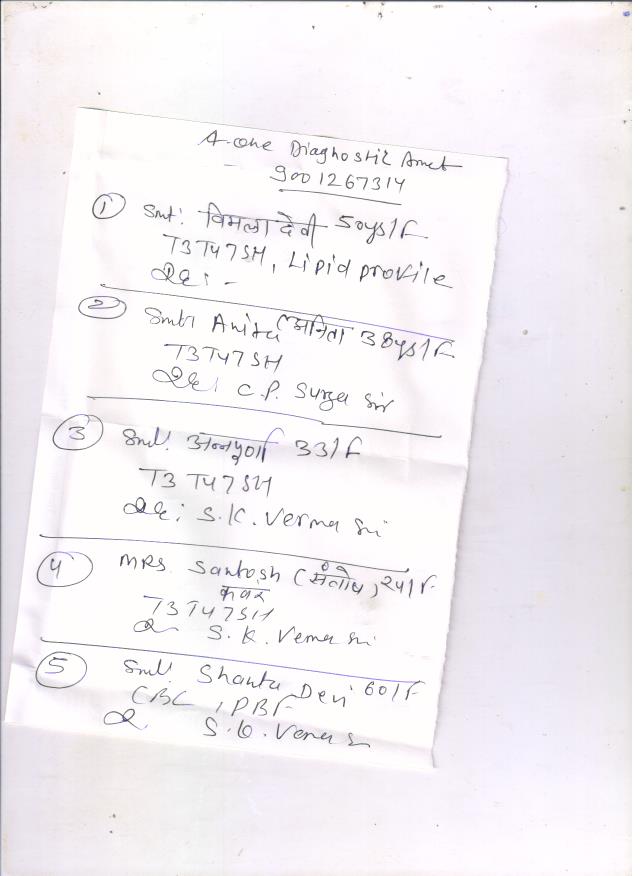 A-one Diagnostic Amet
9001267314
① Smt. विमला देवी 50ys/F
T3T4TSH, Lipid profile
② Smt. Anita (अनिता 38ys/F
T3T4TSH
C.P. Surya Sir
③ Smt. अन्नपूर्णा 33/F
T3 T4TSH
S.K. Verma Sir
④ MRS. Santosh (संतोष) 24/F
कंवर
T3T4TSH
S.K. Verma Sir
⑤ Smt. Shanta Devi 60/F
CBC, PBF
S.K. Verma S